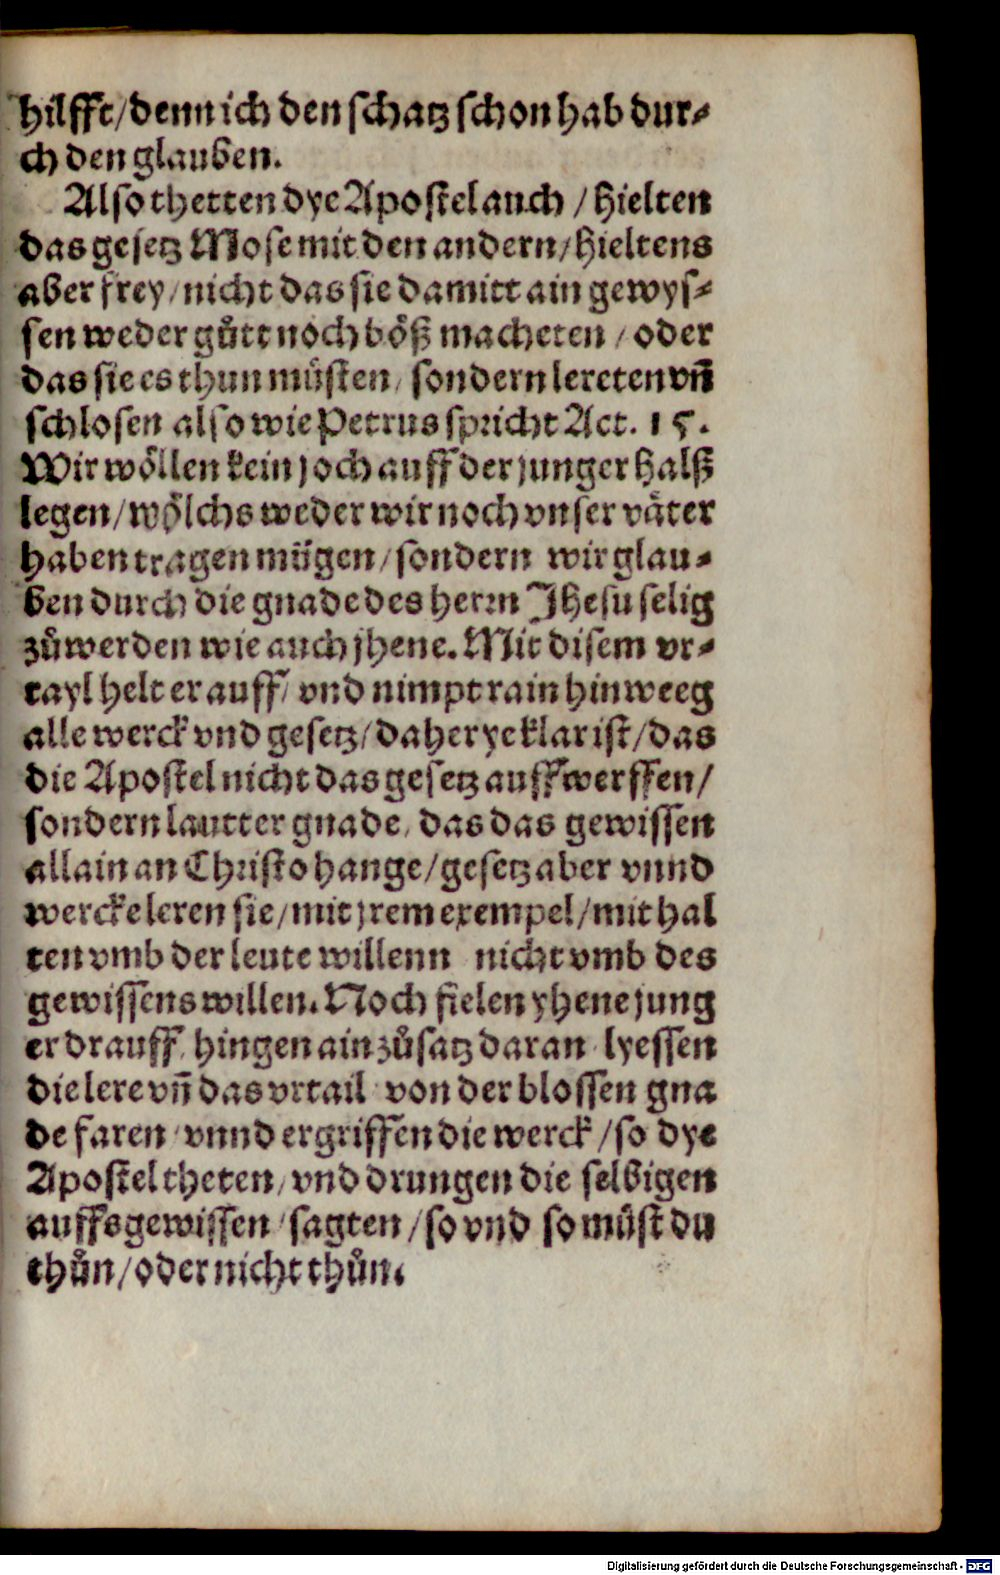 hilfft/denn ich den schatz schon hab dur⸗
ch den glauben.
Also thetten dye Apostel auch / hielten
das gesetz Mose mit den andern/hieltens
aber frey/nicht das sie damitt ain gewys⸗
sen weder gůtt noch böß macheten / oder
das sie es thun müsten/ sondern lereten vñ
schlosen also wie Petrus spricht Act. 15.
Wir wöllen kein joch auff der junger halß
legen/wölchs weder wir noch vnser väter
haben tragen mügen/sondern wir glau⸗
ben durch die gnade des herrn Jhesu selig
zůwerden wie auch jhene. Mit disem vr⸗
tayl helt er auff/ vnd nimpt rain hinweeg
alle werck vnd gesetz/daher ye klar ist/das
die Apostel nicht das gesetz auffwerffen/
sondern lautter gnade/ das das gewissen
allain an Christo hange/gesetz aber vnnd
wercke leren sie/mit jrem exempel/mit hal
ten vmb der leute willenn nicht vmb des
gewissens willen. Noch fielen yhene jung
er drauff/ hingen ain zůsatz daran lyessen
die lere vñ das vrtail von der blossen gna
de faren/vnnd ergriffen die werck/so dye
Apostel theten/vnd drungen die selbigen
auffs gewissen/sagten/so vnd so můst du
thůn/oder nicht thůn.
Digitalisierung gefördert durch die Deutsche Forschungsgemeinschaft - DFG